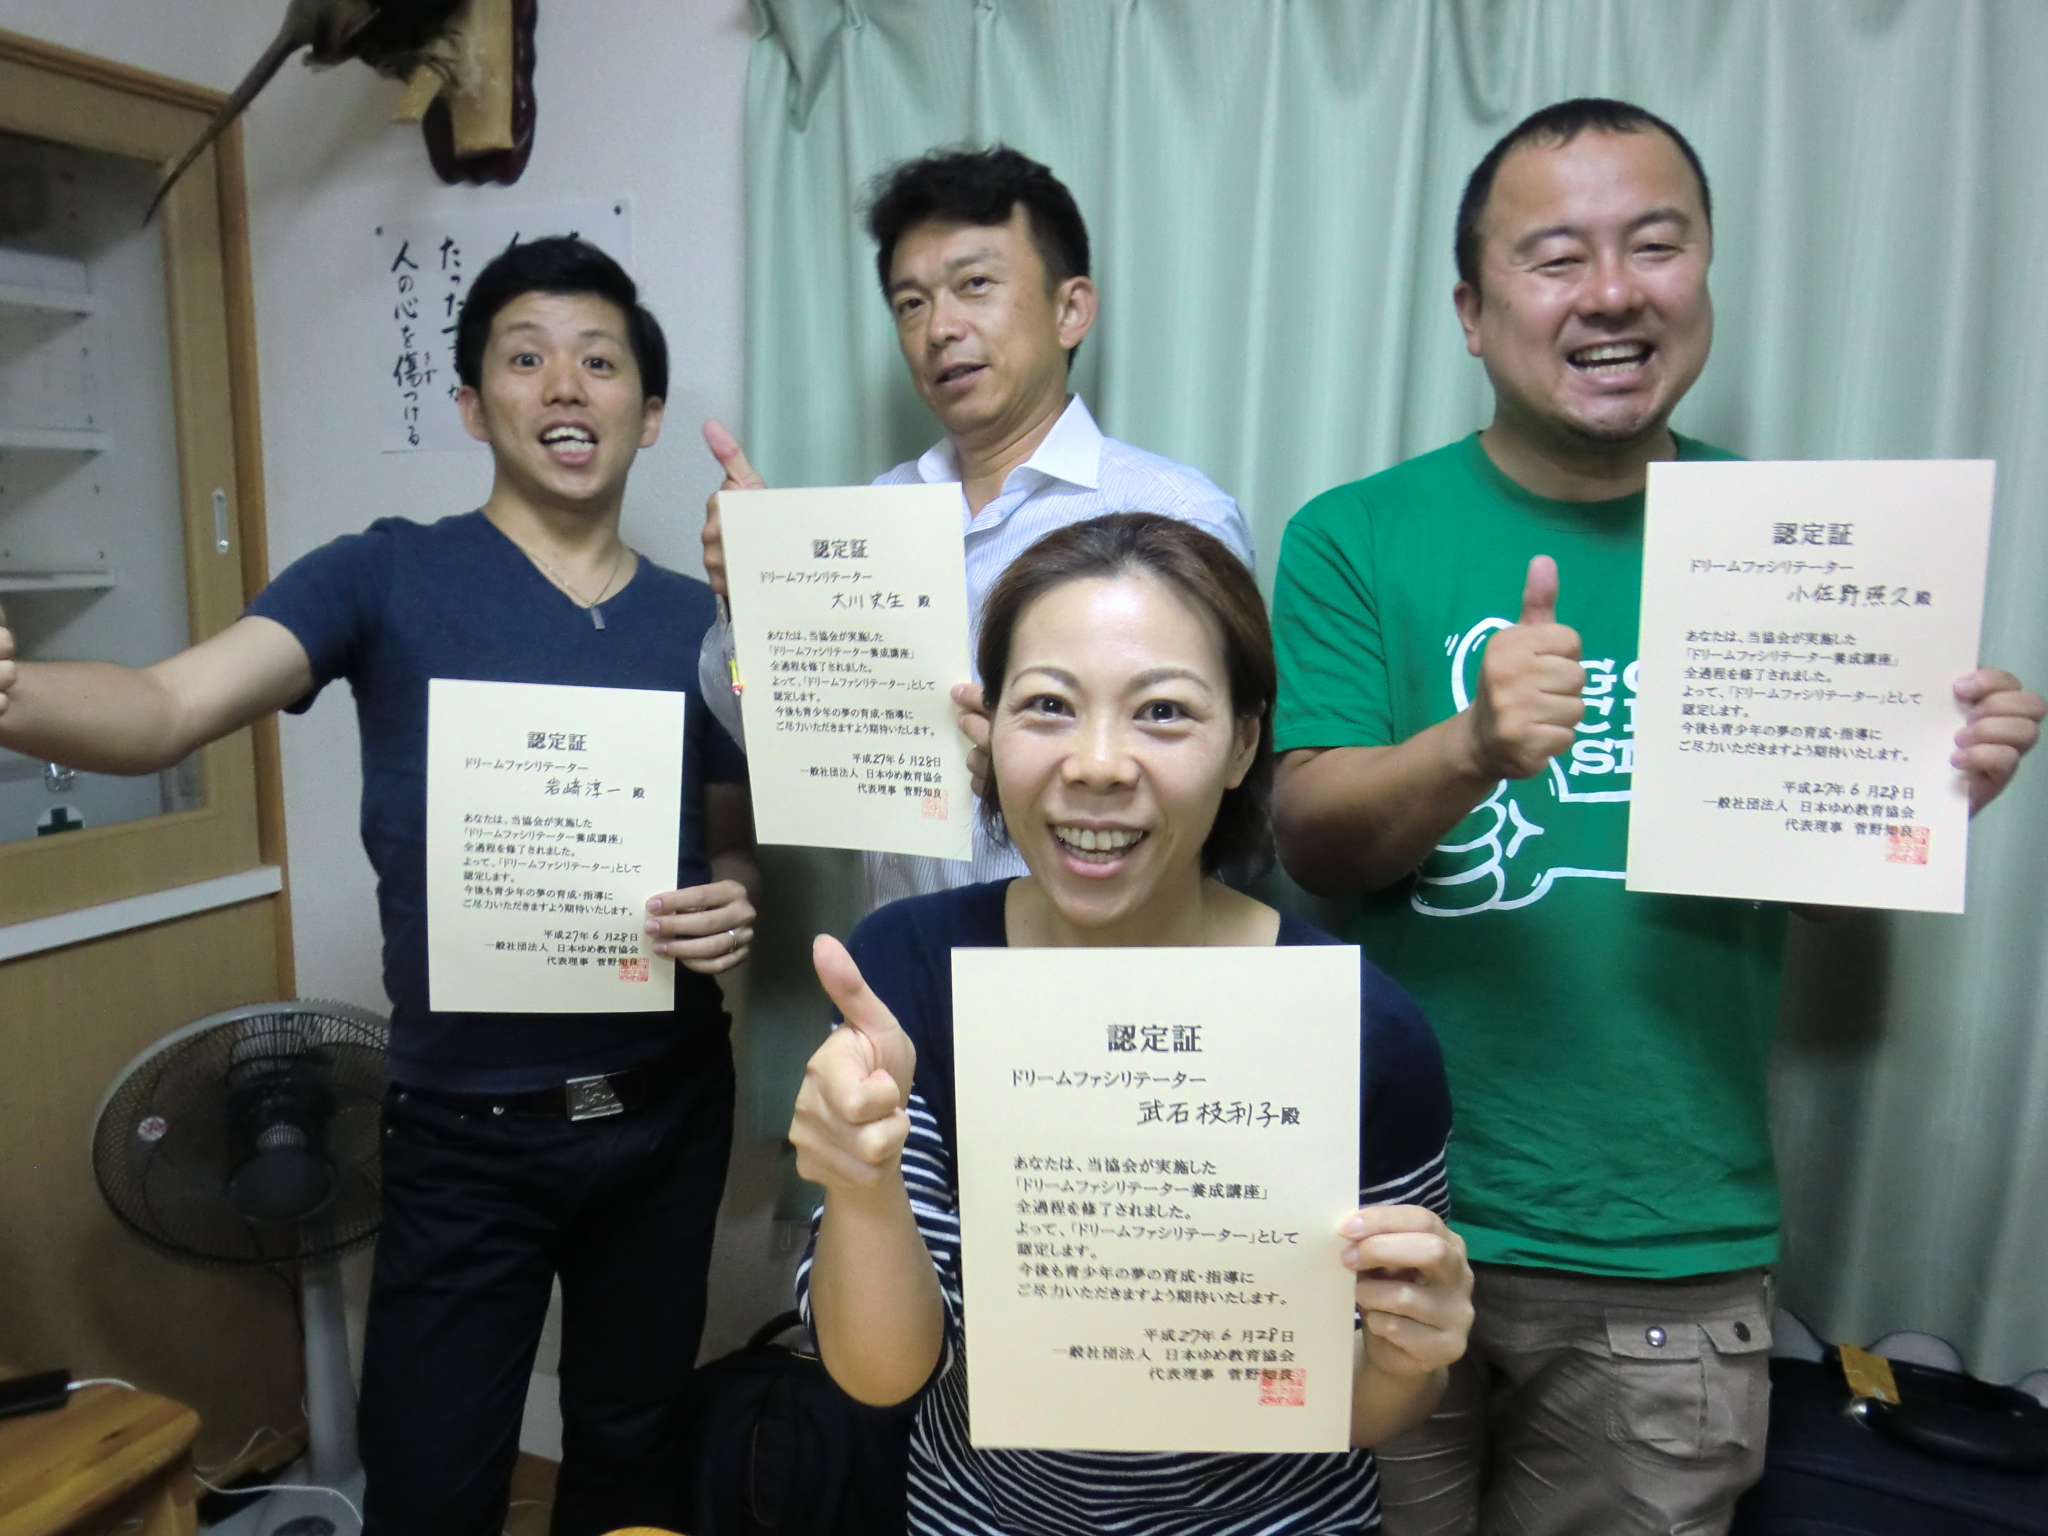 たった一言が
人の心を傷つける
きず
認定証
ドリームファシリテーター
岩崎淳一 殿
あなたは、当協会が実施した
「ドリームファシリテーター養成講座」
全過程を修了されました。
よって、「ドリームファシリテーター」として
認定します。
今後も青少年の夢の育成・指導に
ご尽力いただきますよう期待いたします。
平成27年6月28日
一般社団法人 日本ゆめ教育協会
代表理事 菅野知良
認定証
ドリームファシリテーター
大川史生 殿
あなたは、当協会が実施した
「ドリームファシリテーター養成講座」
全過程を修了されました。
よって、「ドリームファシリテーター」として
認定します。
今後も青少年の夢の育成・指導に
ご尽力いただきますよう期待いたします。
平成27年6月28日
一般社団法人 日本ゆめ教育協会
代表理事 菅野知良
認定証
ドリームファシリテーター
武石枝利子殿
あなたは、当協会が実施した
「ドリームファシリテーター養成講座」
全過程を修了されました。
よって、「ドリームファシリテーター」として
認定します。
今後も青少年の夢の育成・指導に
ご尽力いただきますよう期待いたします。
平成27年6月28日
一般社団法人 日本ゆめ教育協会
代表理事 菅野知良
認定証
ドリームファシリテーター
小佐野照久殿
あなたは、当協会が実施した
「ドリームファシリテーター養成講座」
全過程を修了されました。
よって、「ドリームファシリテーター」として
認定します。
今後も青少年の夢の育成・指導に
ご尽力いただきますよう期待いたします。
平成27年6月28日
一般社団法人 日本ゆめ教育協会
代表理事 菅野知良